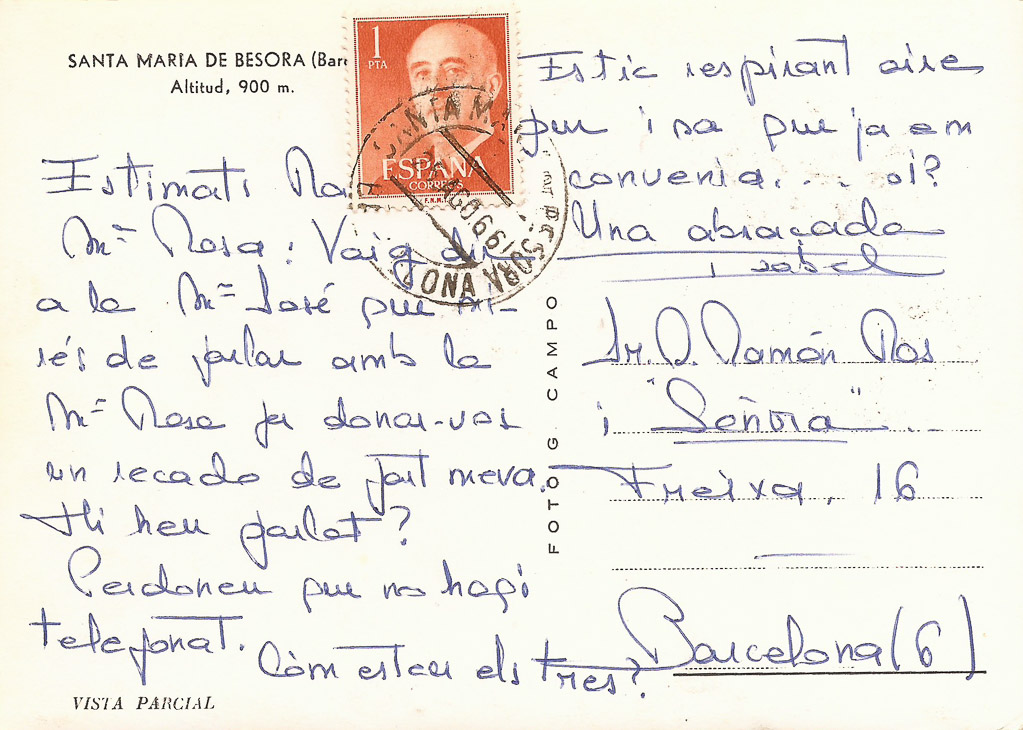 SANTA MARIA DE BESORA (Barc
Altitud, 900 m.
1
PTA
ESPAÑA
CORREOS
F.N.M.T.
Estimats
Mª Rosa: Vaig dir
a la Mª José que mi-
rés de parlar amb la
Mª Rosa per donar-vos
un recado de part meva.
Hi heu parlat?
Perdoneu que no hagi
telefonat.
Còm esteu els tres?
Estic respirant aire
pur i sa que ja em
convenia.... oi?
Una abraçada
isabel
FOTOG CAMPO
Sr. D. Ramón Ros
i "Señora"...
Freixa, 16
Barcelona (6)
VISTA PARCIAL